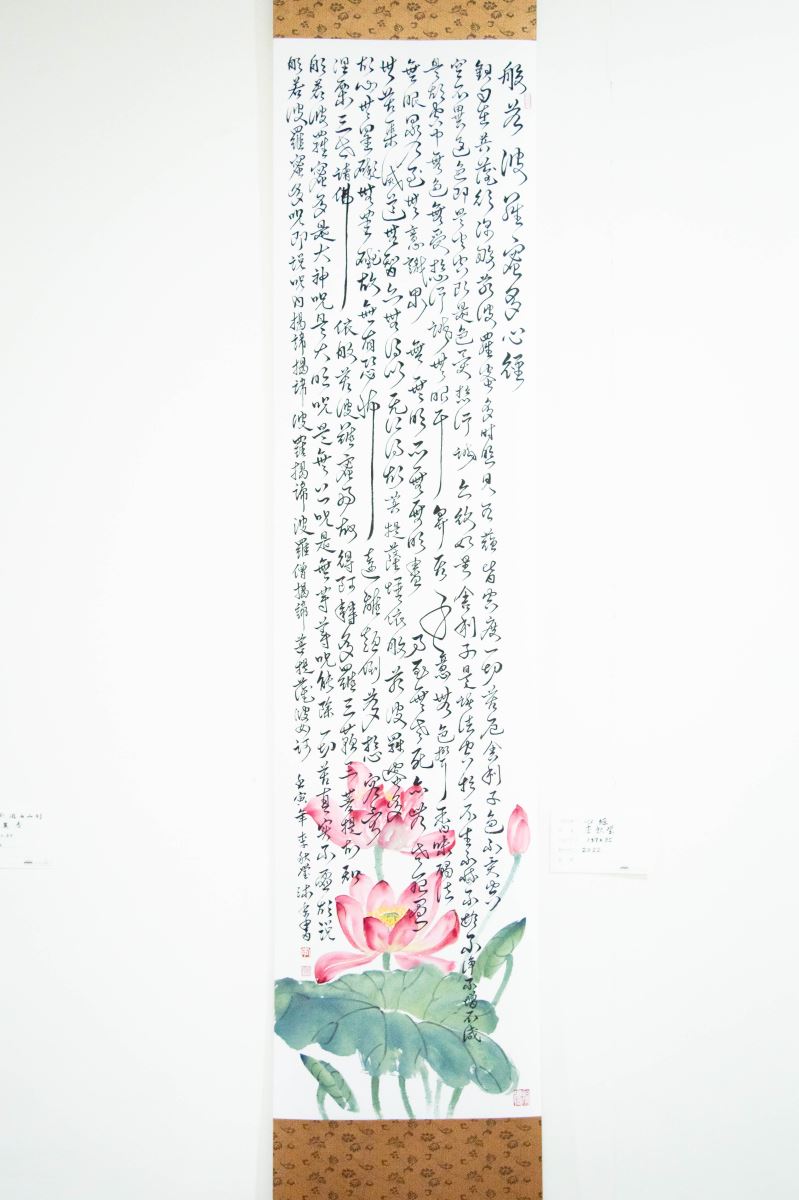 般若波羅蜜多心經
觀自在菩薩行深般若波羅蜜多時照見五蘊皆空度一切苦厄舍利子色不異空
空不異色色即是空空即是色受想行識亦復如是舍利子是諸法空相不生不滅不垢不淨不增不減
是故空中無色無受想行識無眼耳鼻舌身意無色聲香味觸法
無眼界乃至無意識界無無明亦無無明盡乃至無老死亦無老死盡
無苦集滅道無智亦無得以无所得故菩提薩埵依般若波羅蜜多
故心無罣礙無罣礙故無有恐怖遠離顛倒夢想究竟
涅槃三世諸佛依般若波羅蜜多故得阿耨多羅三藐三菩提故知
般若波羅蜜多是大神呪是大明呪是無上呪是無等等呪能除一切苦真實不虛故說
般若波羅蜜多呪即說呪曰揭諦揭諦波羅揭諦波羅僧揭諦菩提薩婆訶
壬寅年李秋瑩沐手書
心經
李秋瑩
137×35
2022